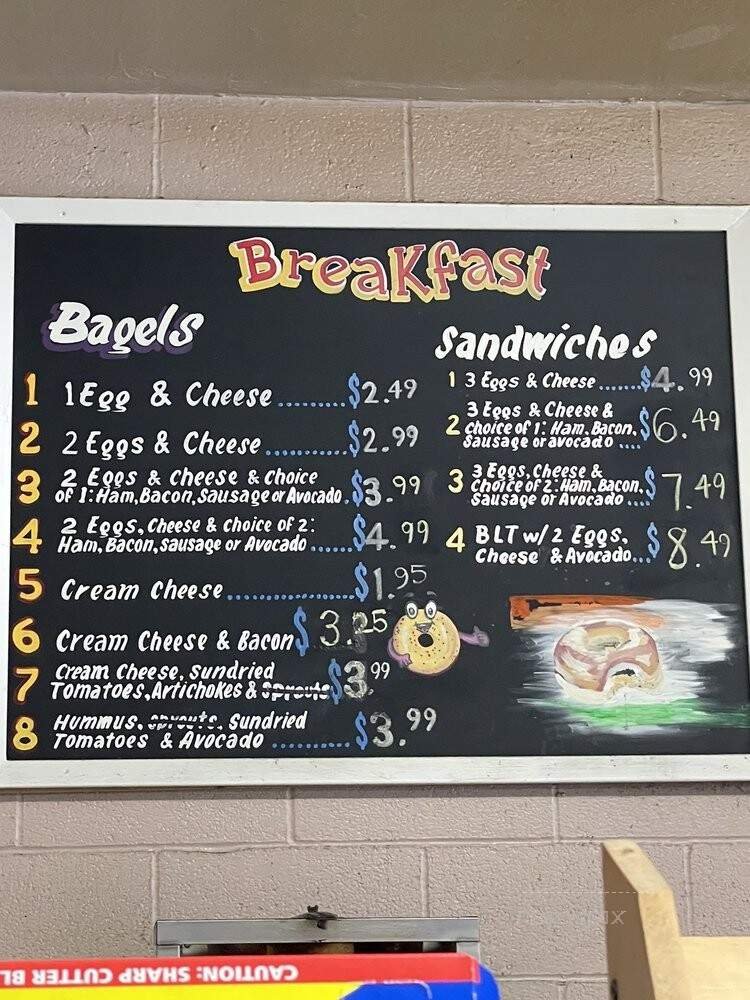 Breakfast
Bagels
1 1 Egg & Cheese ........ $2.49
2 2 Eggs & Cheese ......... $2.99
3 2 Eggs & Cheese & choice
of 1: Ham, Bacon, Sausage or Avocado . $3.99
4 2 Eggs, Cheese & choice of 2:
Ham, Bacon, sausage or Avocado ...... $4.99
5 Cream Cheese ................ $1.95
6 Cream Cheese & Bacon $3.25
7 Cream Cheese, Sundried
Tomatoes, Artichokes & sprouts $3.99
8 Hummus, sprouts, Sundried
Tomatoes & Avocado ........... $3.99
Sandwiches
1 3 Eggs & Cheese ...... $4.99
2 3 Eggs & Cheese &
choice of 1: Ham, Bacon,
Sausage or avocado .... $6.49
3 3 Eggs, Cheese &
Choice of 2: Ham, Bacon,
Sausage or Avocado .... $7.49
4 BLT w/ 2 Eggs,
Cheese & Avocado... $8.49
CAUTION: SHARP CUTTER BL